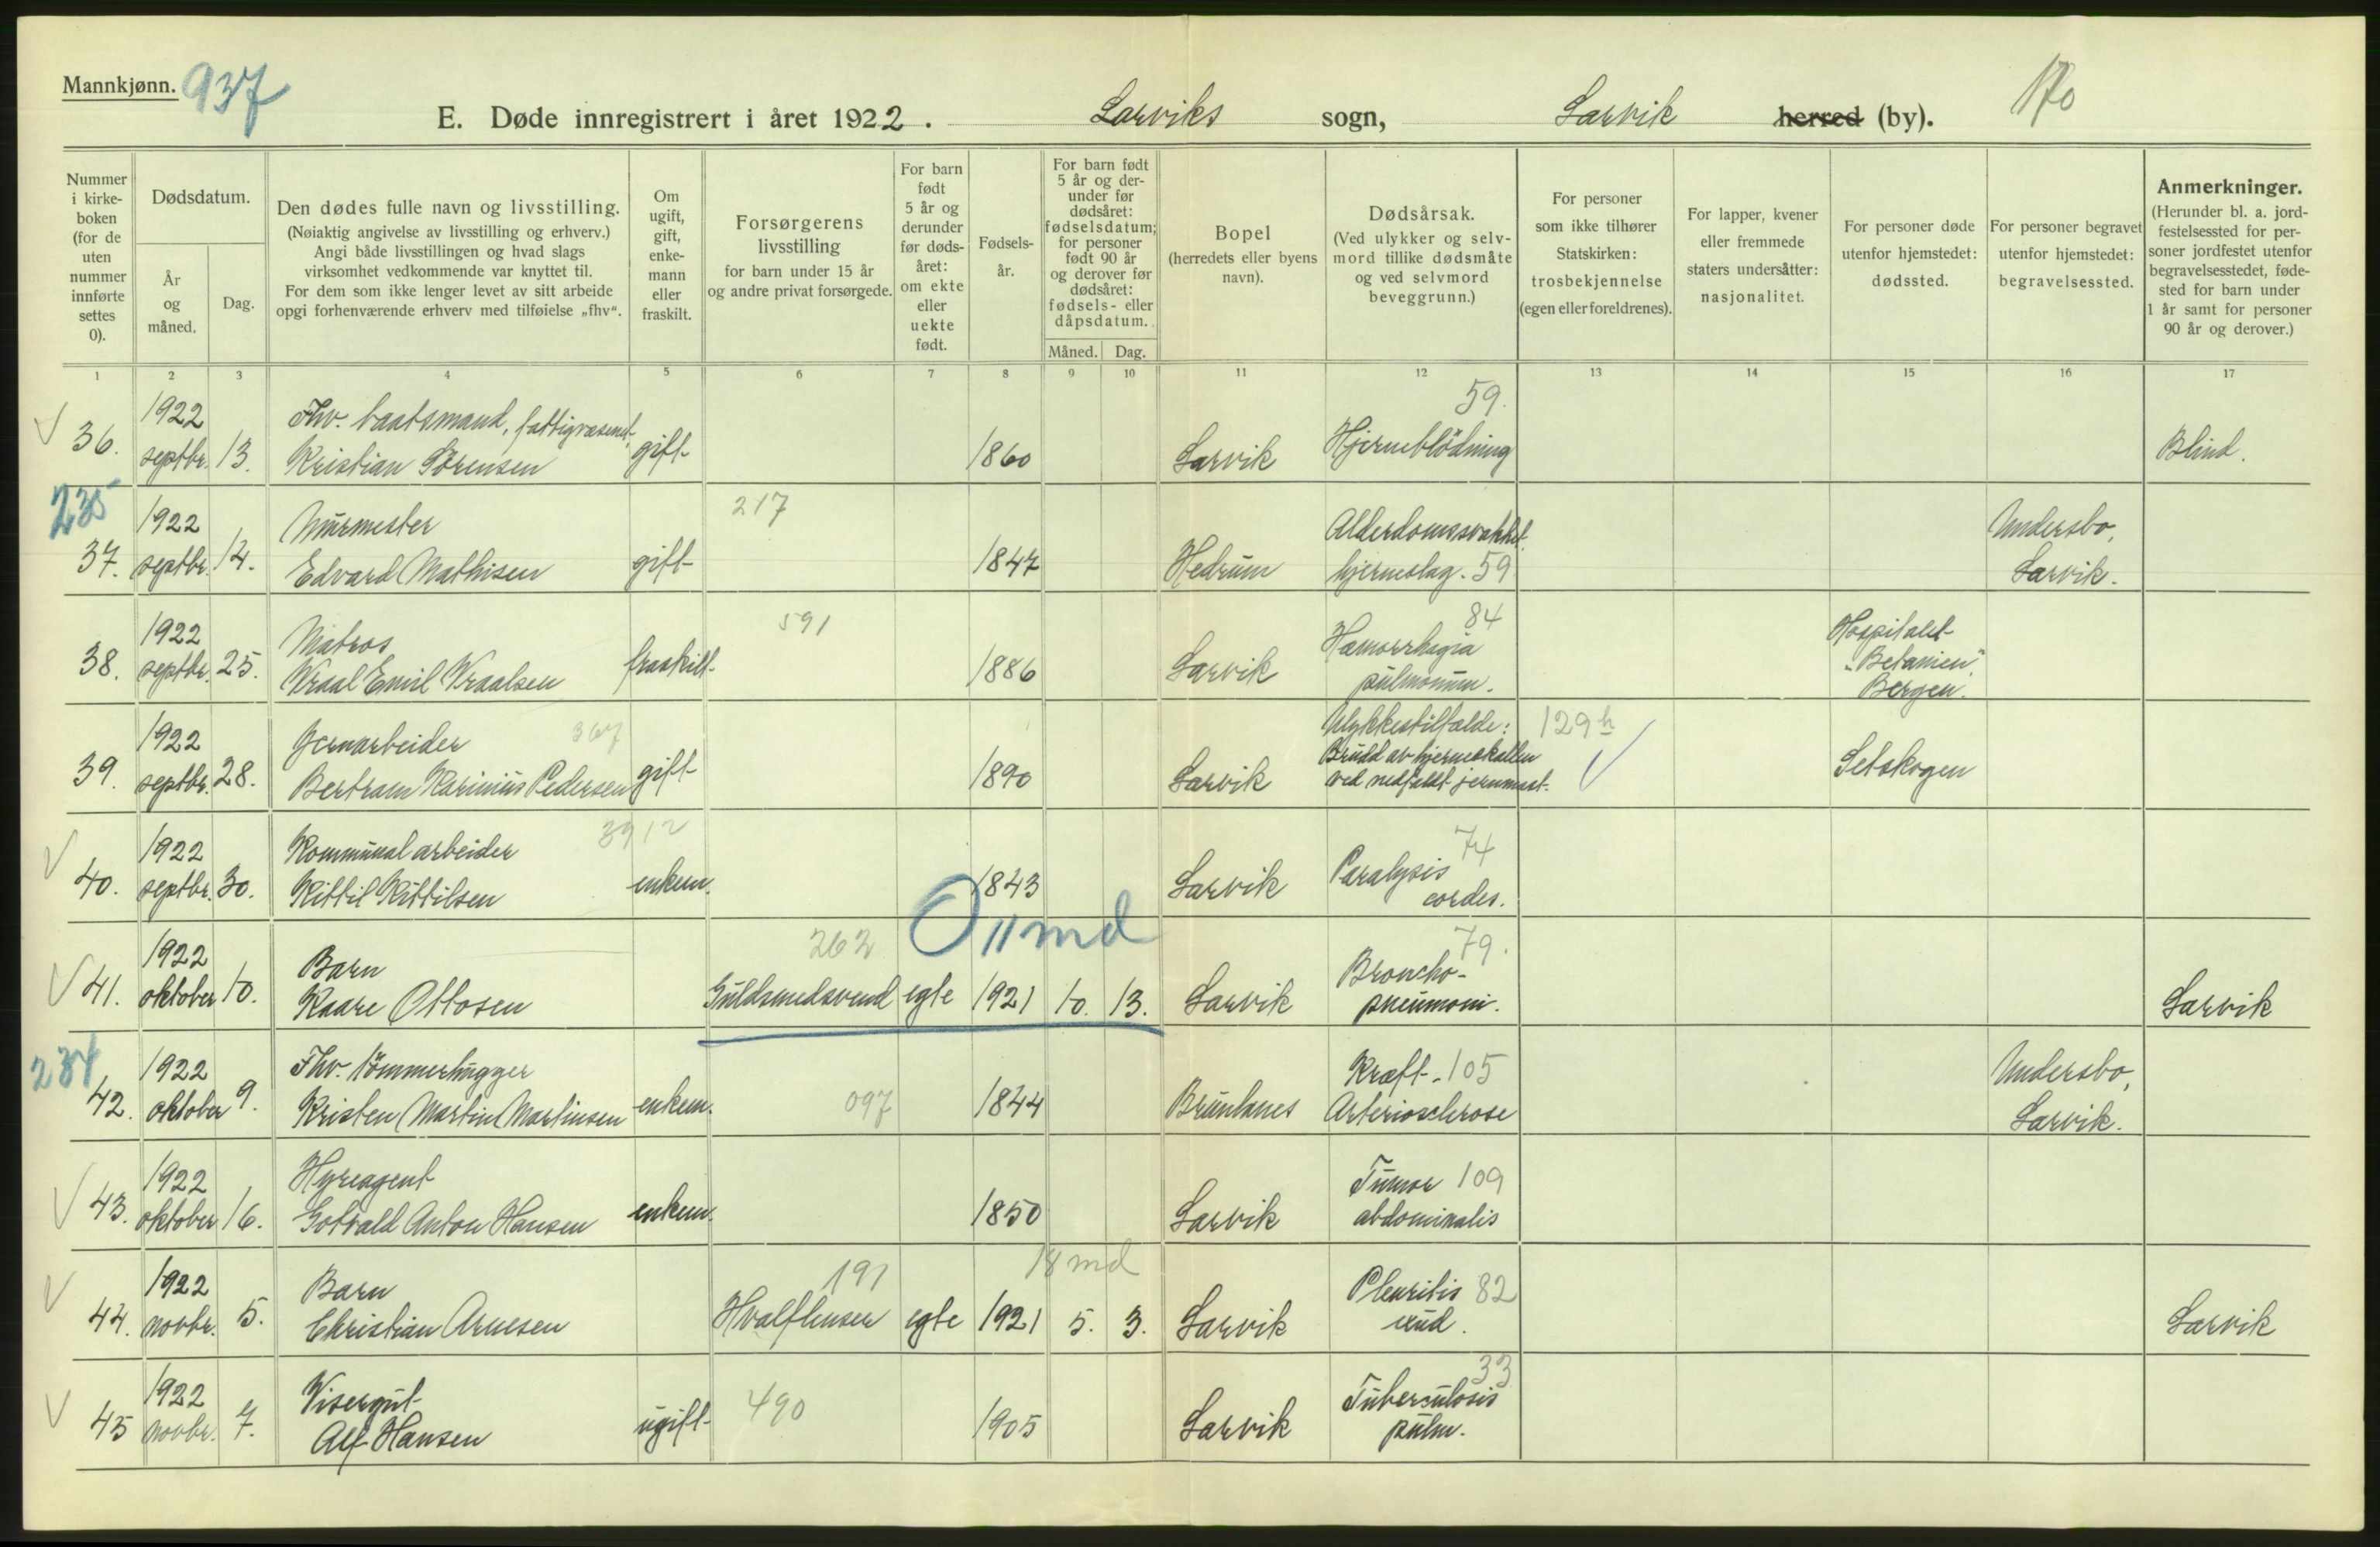 Mannkjønn. 937
E. Døde innregistrert i året 1922. Larviks sogn, Larvik herred (by). 170
Nummer i kirkeboken (for de uten nummer innførte settes 0).
Dødsdatum.
År og måned.
Dag.
Den dødes fulle navn og livsstilling.
(Nøiaktig angivelse av livsstilling og erhverv.)
Angi både livsstillingen og hvad slags
virksomhet vedkommende var knyttet til.
For dem som ikke lenger levet av sitt arbeide
opgi forhenværende erhverv med tilføielse „fhv“.
Om ugift, gift, enkemann eller fraskilt.
Forsørgerens livsstilling
for barn under 15 år
og andre privat forsørgede.
For barn født 5 år og derunder før dødsåret: om ekte eller uekte født.
Fødselsår.
For barn født 5 år og derunder før dødsåret: fødselsdatum; for personer født 90 år og derover før dødsåret: fødsels- eller dåpsdatum.
Måned. Dag.
Bopel
(herredets eller byens navn).
Dødsårsak.
(Ved ulykker og selvmord tillike dødsmåte og ved selvmord beveggrunn.)
For personer som ikke tilhører Statskirken: trosbekjennelse (egen eller foreldrenes).
For lapper, kvener eller fremmede staters undersåtter: nasjonalitet.
For personer døde utenfor hjemstedet: dødssted.
For personer begravet utenfor hjemstedet: begravelsessted.
Anmerkninger.
(Herunder bl. a. jordfestelsessted for personer jordfestet utenfor begravelsesstedet, fødested for barn under 1 år samt for personer 90 år og derover.)
1 2 3 4 5 6 7 8 9 10 11 12 13 14 15 16 17
36. 1922 septbr. 13. Fhv. baatsmand, fattigvæsenet, Kristian Sörensen gift 1860 Larvik Hjerneblödning 59. Blind.
235
37. 1922 septbr. 14. Murmester Edvard Mathisen gift 217 1847 Hedrum Alderdomssvakhet, hjerneslag. 59 Undersbo, Larvik.
38. 1922 septbr. 25. Matros Wraal Emil Wraalsen fraskilt 591 1886 Larvik 84 Hæmorrhagia pulmonum. Hospitalet „Betanien“ Bergen.
39. 1922 septbr. 28. Jernarbeider 367 Bertram Karinius Pedersen gift 1890 Larvik Ulykkestilfælde: Brudd av hjerneskallen ved nedfaldt jernmast. 129h Setskogen
40. 1922 septbr. 30. Kommunalarbeider 3912 Kittil Kittilsen enkem. 1843 Larvik 74 Paralysis cordes.
0 11 md
41. 1922 oktober 10. Barn Kaare Ottosen 262 Guldsmedsvend egte 1921 10. 13. Larvik 79. Broncho-pneumoni. Larvik
234
42. 1922 oktober 9. Fhv. tömmerhugger Kristen Martin Martinsen enkem. 097 1844 Brunlanes Kræft - 105 Arteriosclerose Undersbo, Larvik.
43. 1922 oktober 16. Hyreagent Gotvald Anton Hansen enkem. 1850 Larvik Tumor 109 abdominalis
18 md
44. 1922 novbr. 5. Barn Christian Arnesen 191 Hvalflenser egte 1921 5. 3. Larvik Pleuritis 82 exud. Larvik
45 1922 novbr. 7. Visergut Alf Hansen ugift 490 1905 Larvik 33 Tuberculosis pulm.